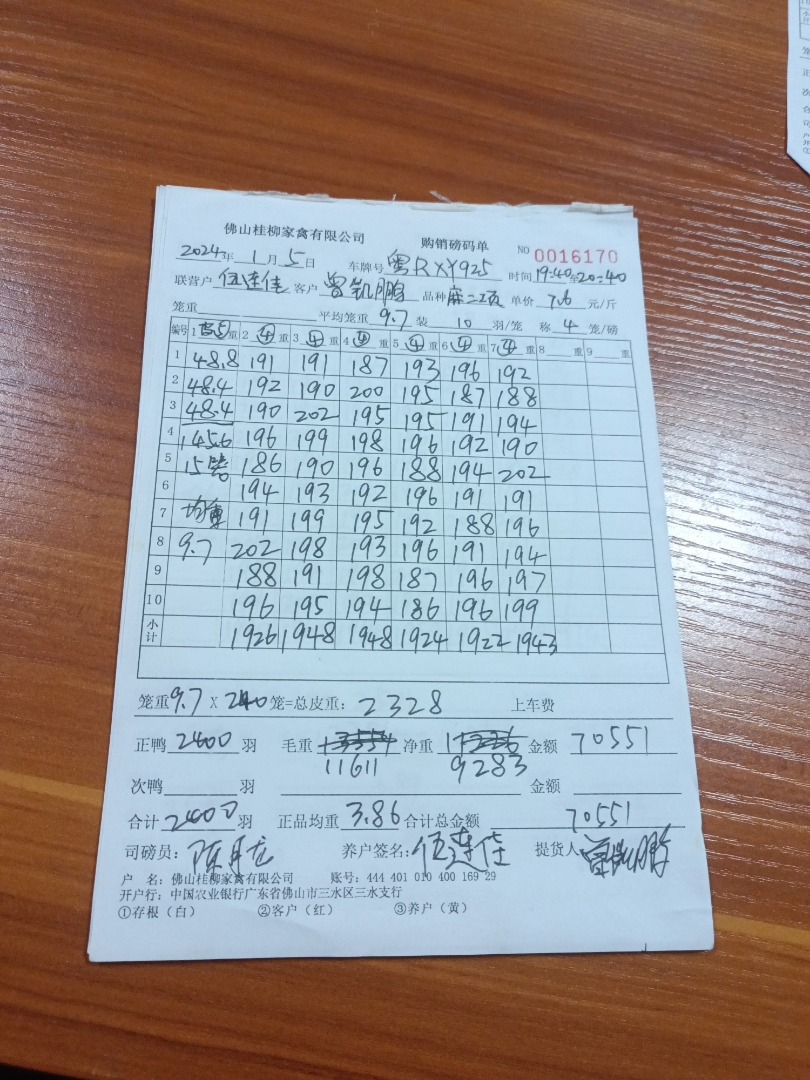 佛山桂柳家禽有限公司 购销磅码单 NO 0016170
2024年 1月 5日 车牌号 粤RXY925 时间 19:40至20:40
联营户 伍连佳 客户 曾凯鹏 品种 麻二 单价 7.6 元/斤
笼重 平均笼重 9.7 装 10 羽/笼 称 4 笼/磅
编号 1 重 2 ④ 重 3 ④ 重 4 ④ 重 5 ④ 重 6 ④ 重 7 ④ 重 8 重 9 重
1 48.8 191 191 187 193 196 192
2 48.4 192 190 200 195 187 188
3 48.4 190 202 195 195 191 194
4 145.6 196 199 198 196 192 190
5 15笼 186 190 196 188 194 202
6 194 193 192 196 191 191
7 均重 191 199 195 192 188 196
8 9.7 202 198 193 196 191 194
9 188 191 198 187 196 197
10 196 195 194 186 196 199
小计 1926 1948 1948 1924 1922 1943
笼重 9.7 X 240 笼=总皮重: 2328 上车费
正鸭 2400 羽 毛重 净重 金额 70551
11611 9283
次鸭 羽 金额
合计 2400 羽 正品均重 3.86 合计总金额 70551
司磅员: 养户签名: 伍连佳 提货人 曾凯鹏
户 名: 佛山桂柳家禽有限公司 账号: 444 401 010 400 169 29
开户行: 中国农业银行广东省佛山市三水区三水支行
①存根(白) ②客户(红) ③养户(黄)